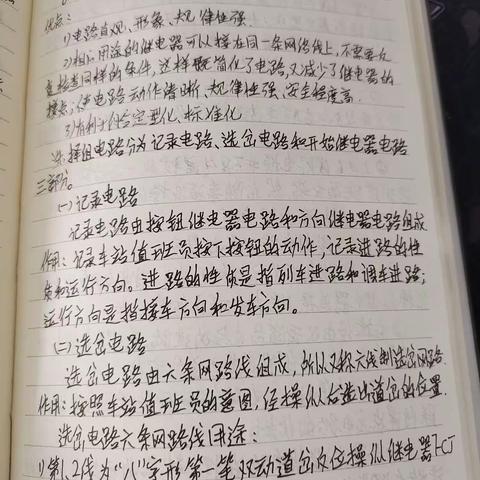 优点：
1)电路直观、形象、规律性强
2)相同用途的继电器可以接在同一条网络线上，不需要反
复检查同样的条件，这样既简化了电路，又减少了继电器的
接点，使电路动作清晰、规律性强、安全程度高.
3)有利于组合定型化、标准化
选择组电路分为记录电路、选岔电路和开始继电器电路
三部分。
(一)记录电路
记录电路由按钮继电器电路和方向继电器电路组成
作用：记录车站值班员按下按钮的动作，记录进路的性
质和运行方向。进路的性质是指列车进路和调车进路；
运行方向是指接车方向和发车方向。
(二)选岔电路
选岔电路由六条网路线组成，所以又称六线制选岔网路.
作用：按照车站值班员的意图，经操纵后选出道岔的位置.
选岔电路六条网路线用途：
1)第1、2线为“八”字形第一笔双动道岔反位操纵继电器1FCJ